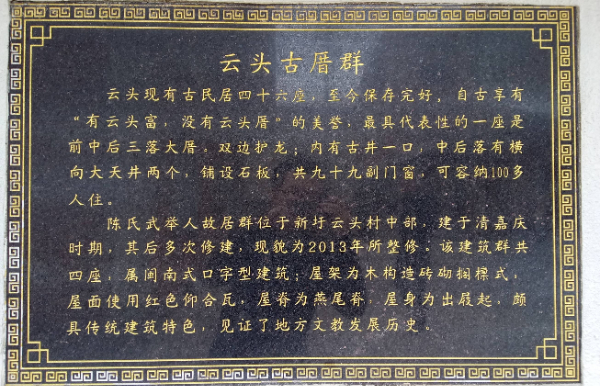 云头古厝群
云头现有古民居四十六座，至今保存完好，自古享有
“有云头富，没有云头厝”的美誉，最具代表性的一座是
前中后三落大厝。双边护龙；内有古井一口，中后落有横
向大天井两个，铺设石板，共九十九副门窗，可容纳100多
人住。
陈氏武举人故居群位于新圩云头村中部，建于清嘉庆
时期，其后多次修建，现貌为2013年所整修。该建筑群共
四座，属闽南式口字型建筑；屋架为木构造砖砌搁檩式，
屋面使用红色仰合瓦，屋脊为燕尾脊，屋身为出屐起，颇
具传统建筑特色，见证了地方文教发展历史。